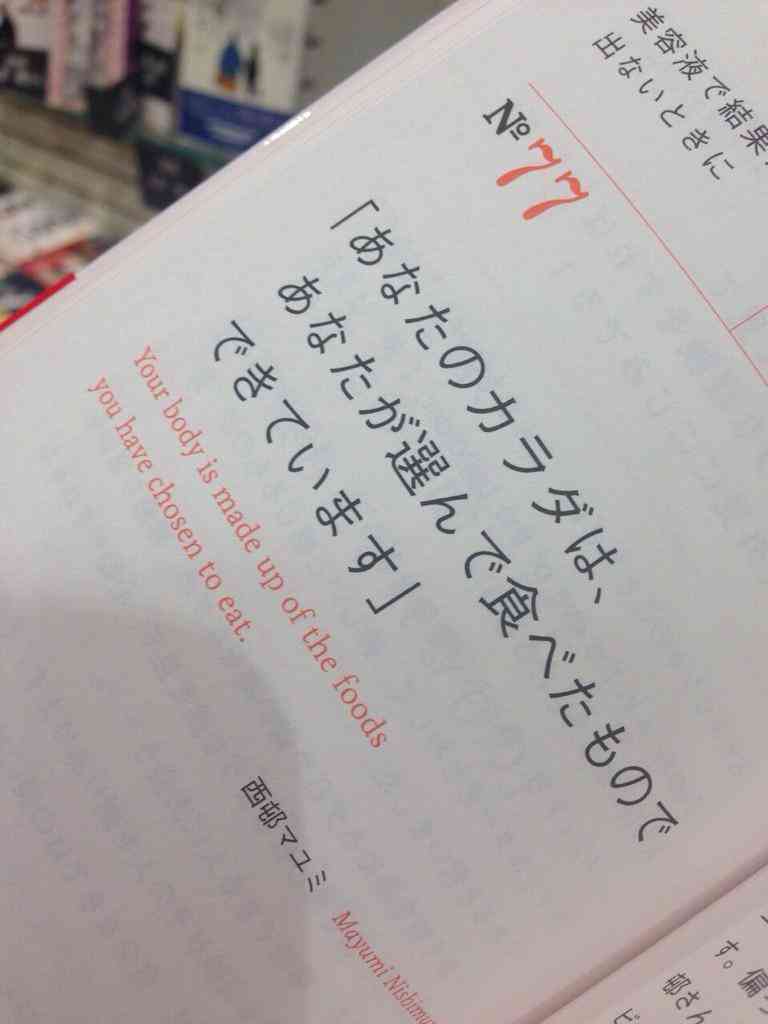 美容液で結果
出ないときに
№77
「あなたのカラダは、
あなたが選んで食べたもので
できています」
Your body is made up of the foods
you have chosen to eat.
西邨マユミ Mayumi
す。偏
邨さん